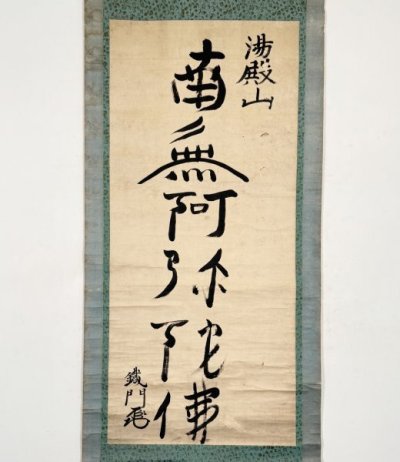 湯殿山
南無阿弥陀佛
鐵門海